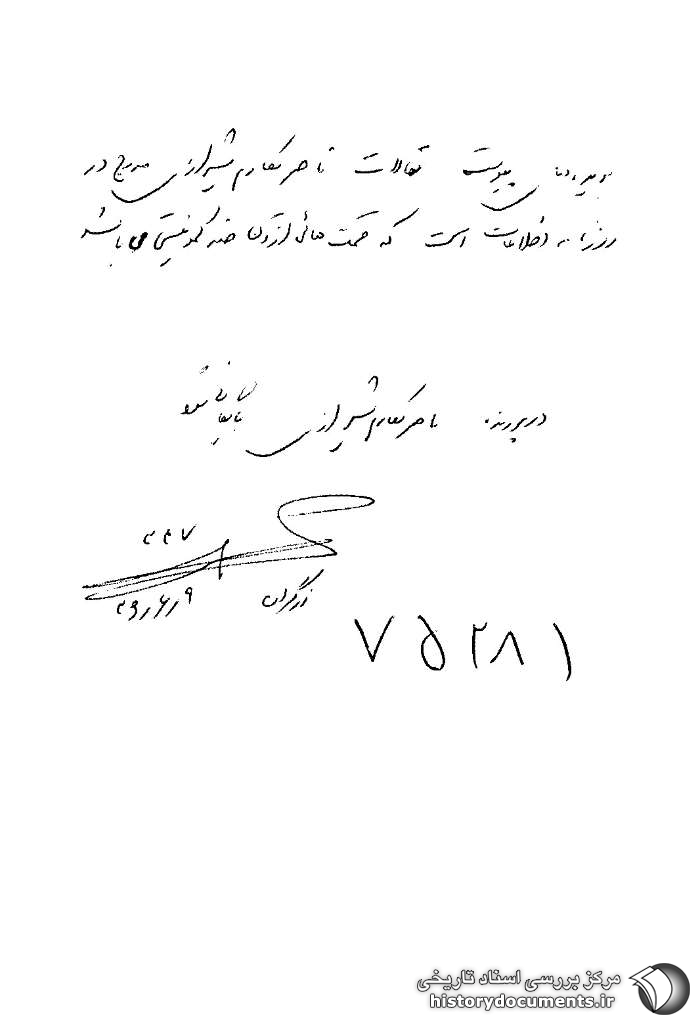 بریده‌های پیوست مقالات ناصر مکارم شیرازی مندرج در
روزنامه اطلاعات است که قسمت هائی از آن ضد کمونیستی می باشد
در پرونده ناصر مکارم شیرازی بایگانی شود
۳۴۷
زرگران
۳۹/۶/۹
۷۵۲۸۱
مرکز بررسی اسناد تاریخی
historydocuments.ir